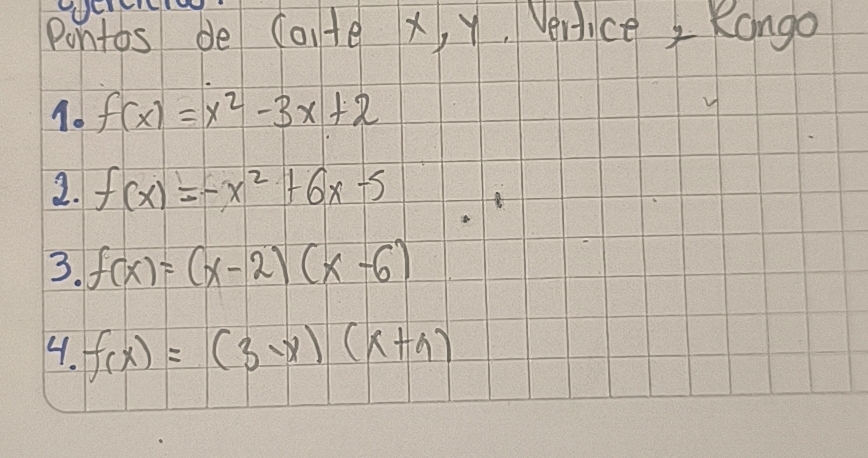 Puntos de Corte x, y. Vertice y Rango
1. f(x) = x² - 3x + 2
2. f(x) = -x² + 6x - 5
3. f(x) = (x - 2) (x - 6)
4. f(x) = (3 - x) (x +